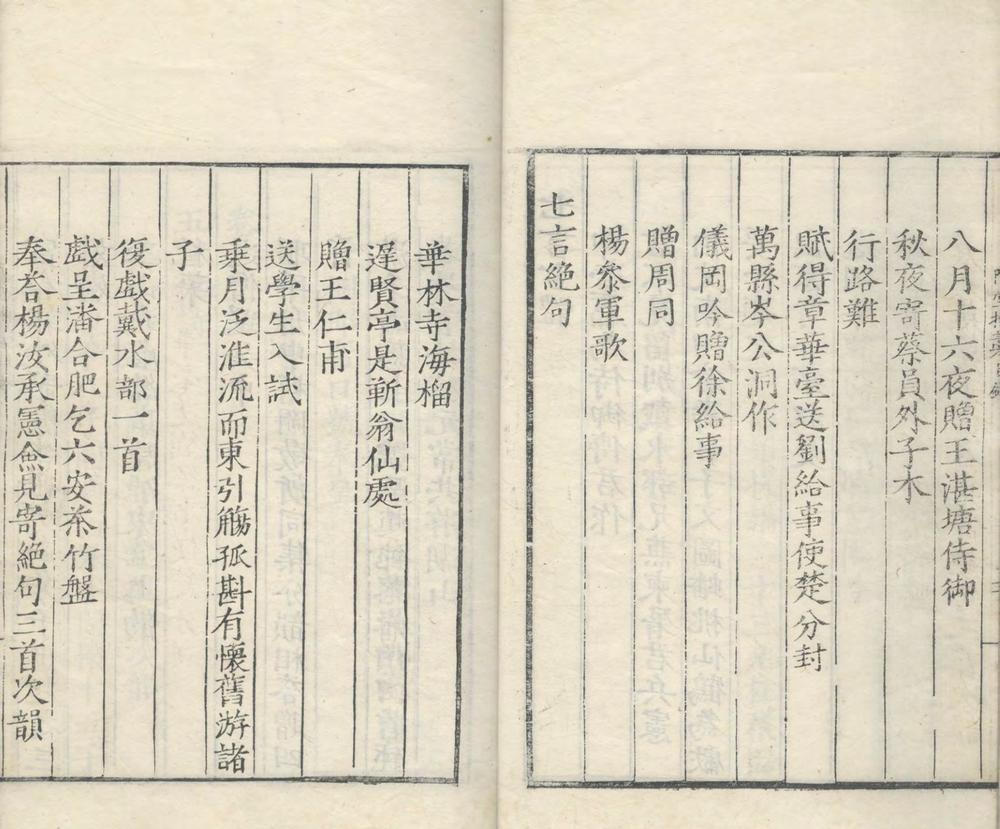 八月十六夜贈王湛塘侍御
秋夜寄蔡員外子木
行路難
賦得章華臺送劉給事使楚分封
萬縣岑公洞作
儀岡吟贈徐給事
贈周同
楊叅軍歌
七言絶句
華林寺海榴
遅賢亭是蘄翁仙處
贈王仁甫
送學生入試
乗月泛淮流而東引觴孤斟有懷舊游諸
子
復戲戴水部一首
戲呈潘合肥乞六安茶竹盤
奉荅楊汝承憲僉見寄絶句三首次韻